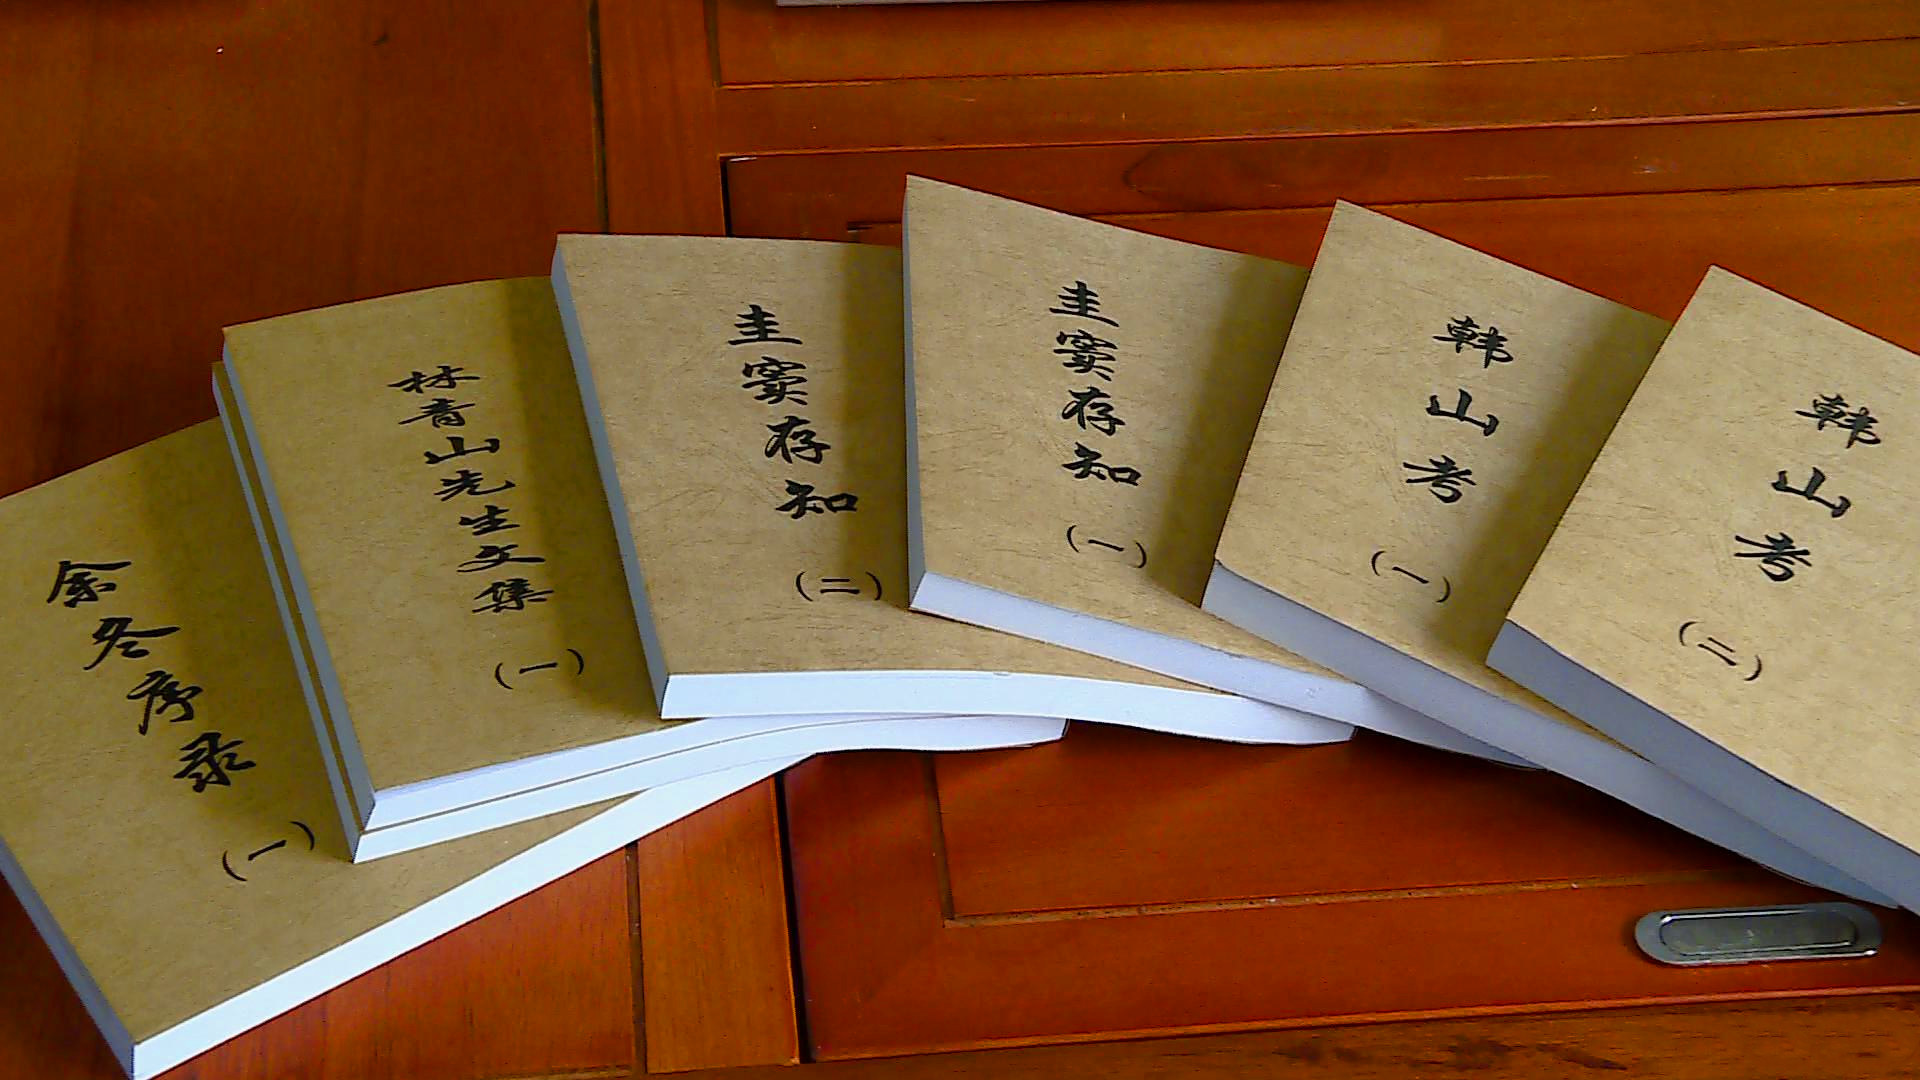 余冬序录
(一)
林青山先生文集
(一)
圭窦存知
(二)
圭窦存知
(一)
韩山考
(一)
韩山考
(二)